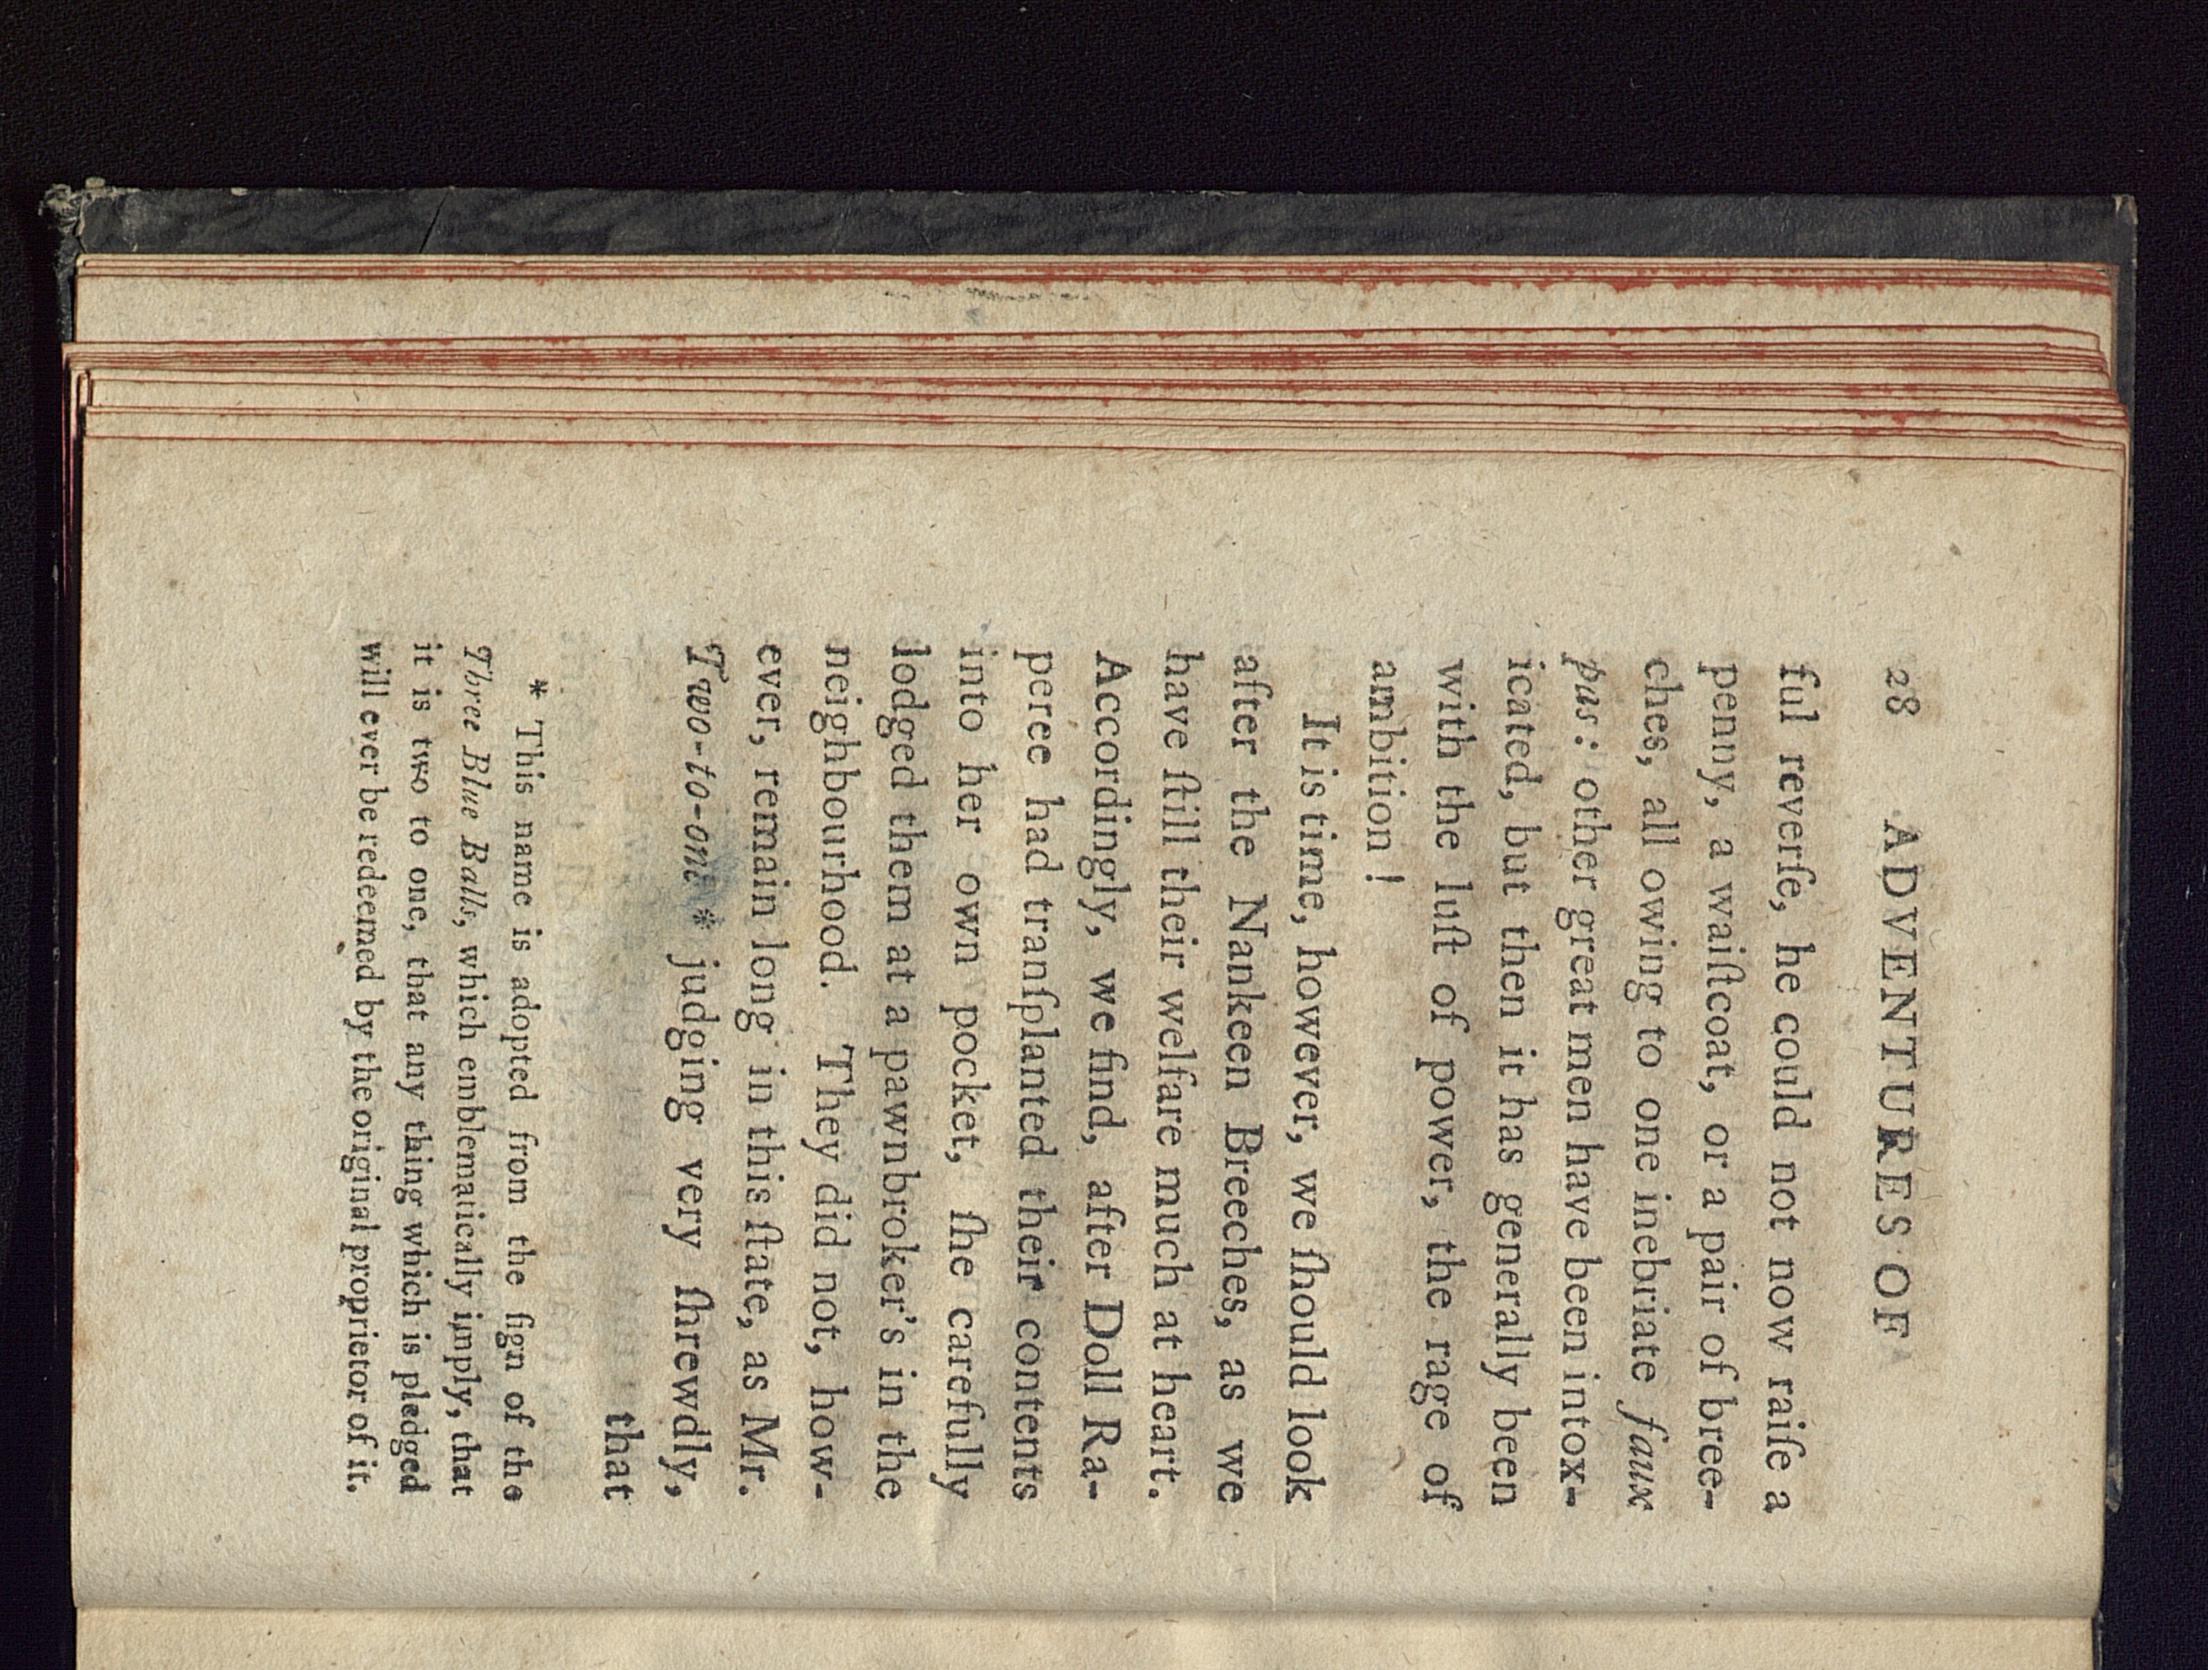 28 ADVENTURES OF
ful reverſe, he could not now raiſe a
penny, a waiſtcoat, or a pair of bree-
ches, all owing to one inebriate faux
pas: other great men have been intox-
icated, but then it has generally been
with the luſt of power, the rage of
ambition!
It is time, however, we ſhould look
after the Nankeen Breeches, as we
have ſtill their welfare much at heart.
Accordingly, we find, after Doll Ra-
peree had tranſplanted their contents
into her own pocket, ſhe carefully
lodged them at a pawnbroker's in the
neighbourhood. They did not, how-
ever, remain long in this ſtate, as Mr.
Two-to-one * judging very ſhrewdly,
that
* This name is adopted from the ſign of the
Three Blue Balls, which emblematically imply, that
it is two to one, that any thing which is pledged
will ever be redeemed by the original proprietor of it.